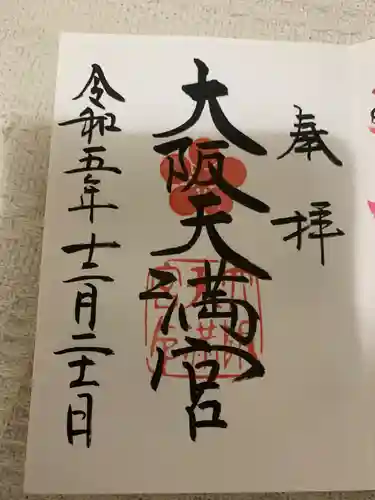 奉拝
大阪天満宮
令和五年十二月二十一日